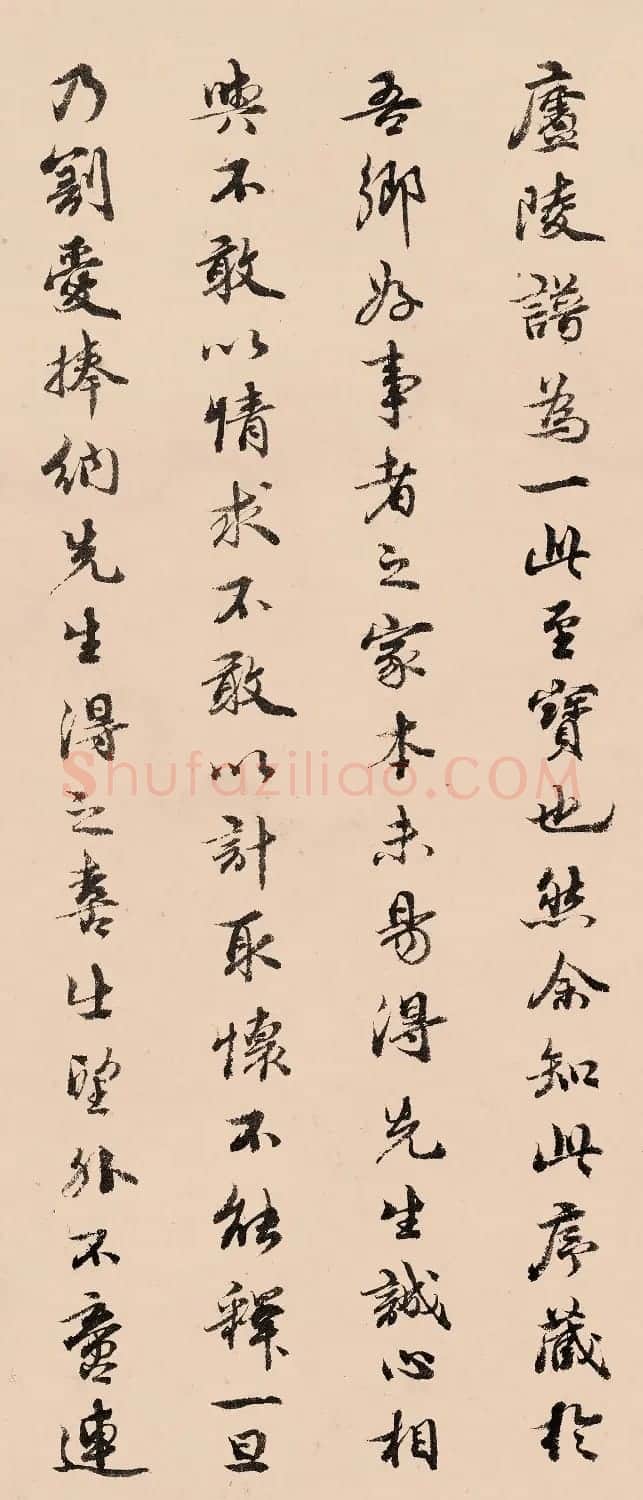 廬陵譜為一此至寶也然余知此序藏於
吾鄉好事者之家本未易得先生誠心相
與不敢以情求不敢以計取懷不能釋一旦
乃割愛捧納先生得之喜出望外不啻連
Shufaziliao.COM